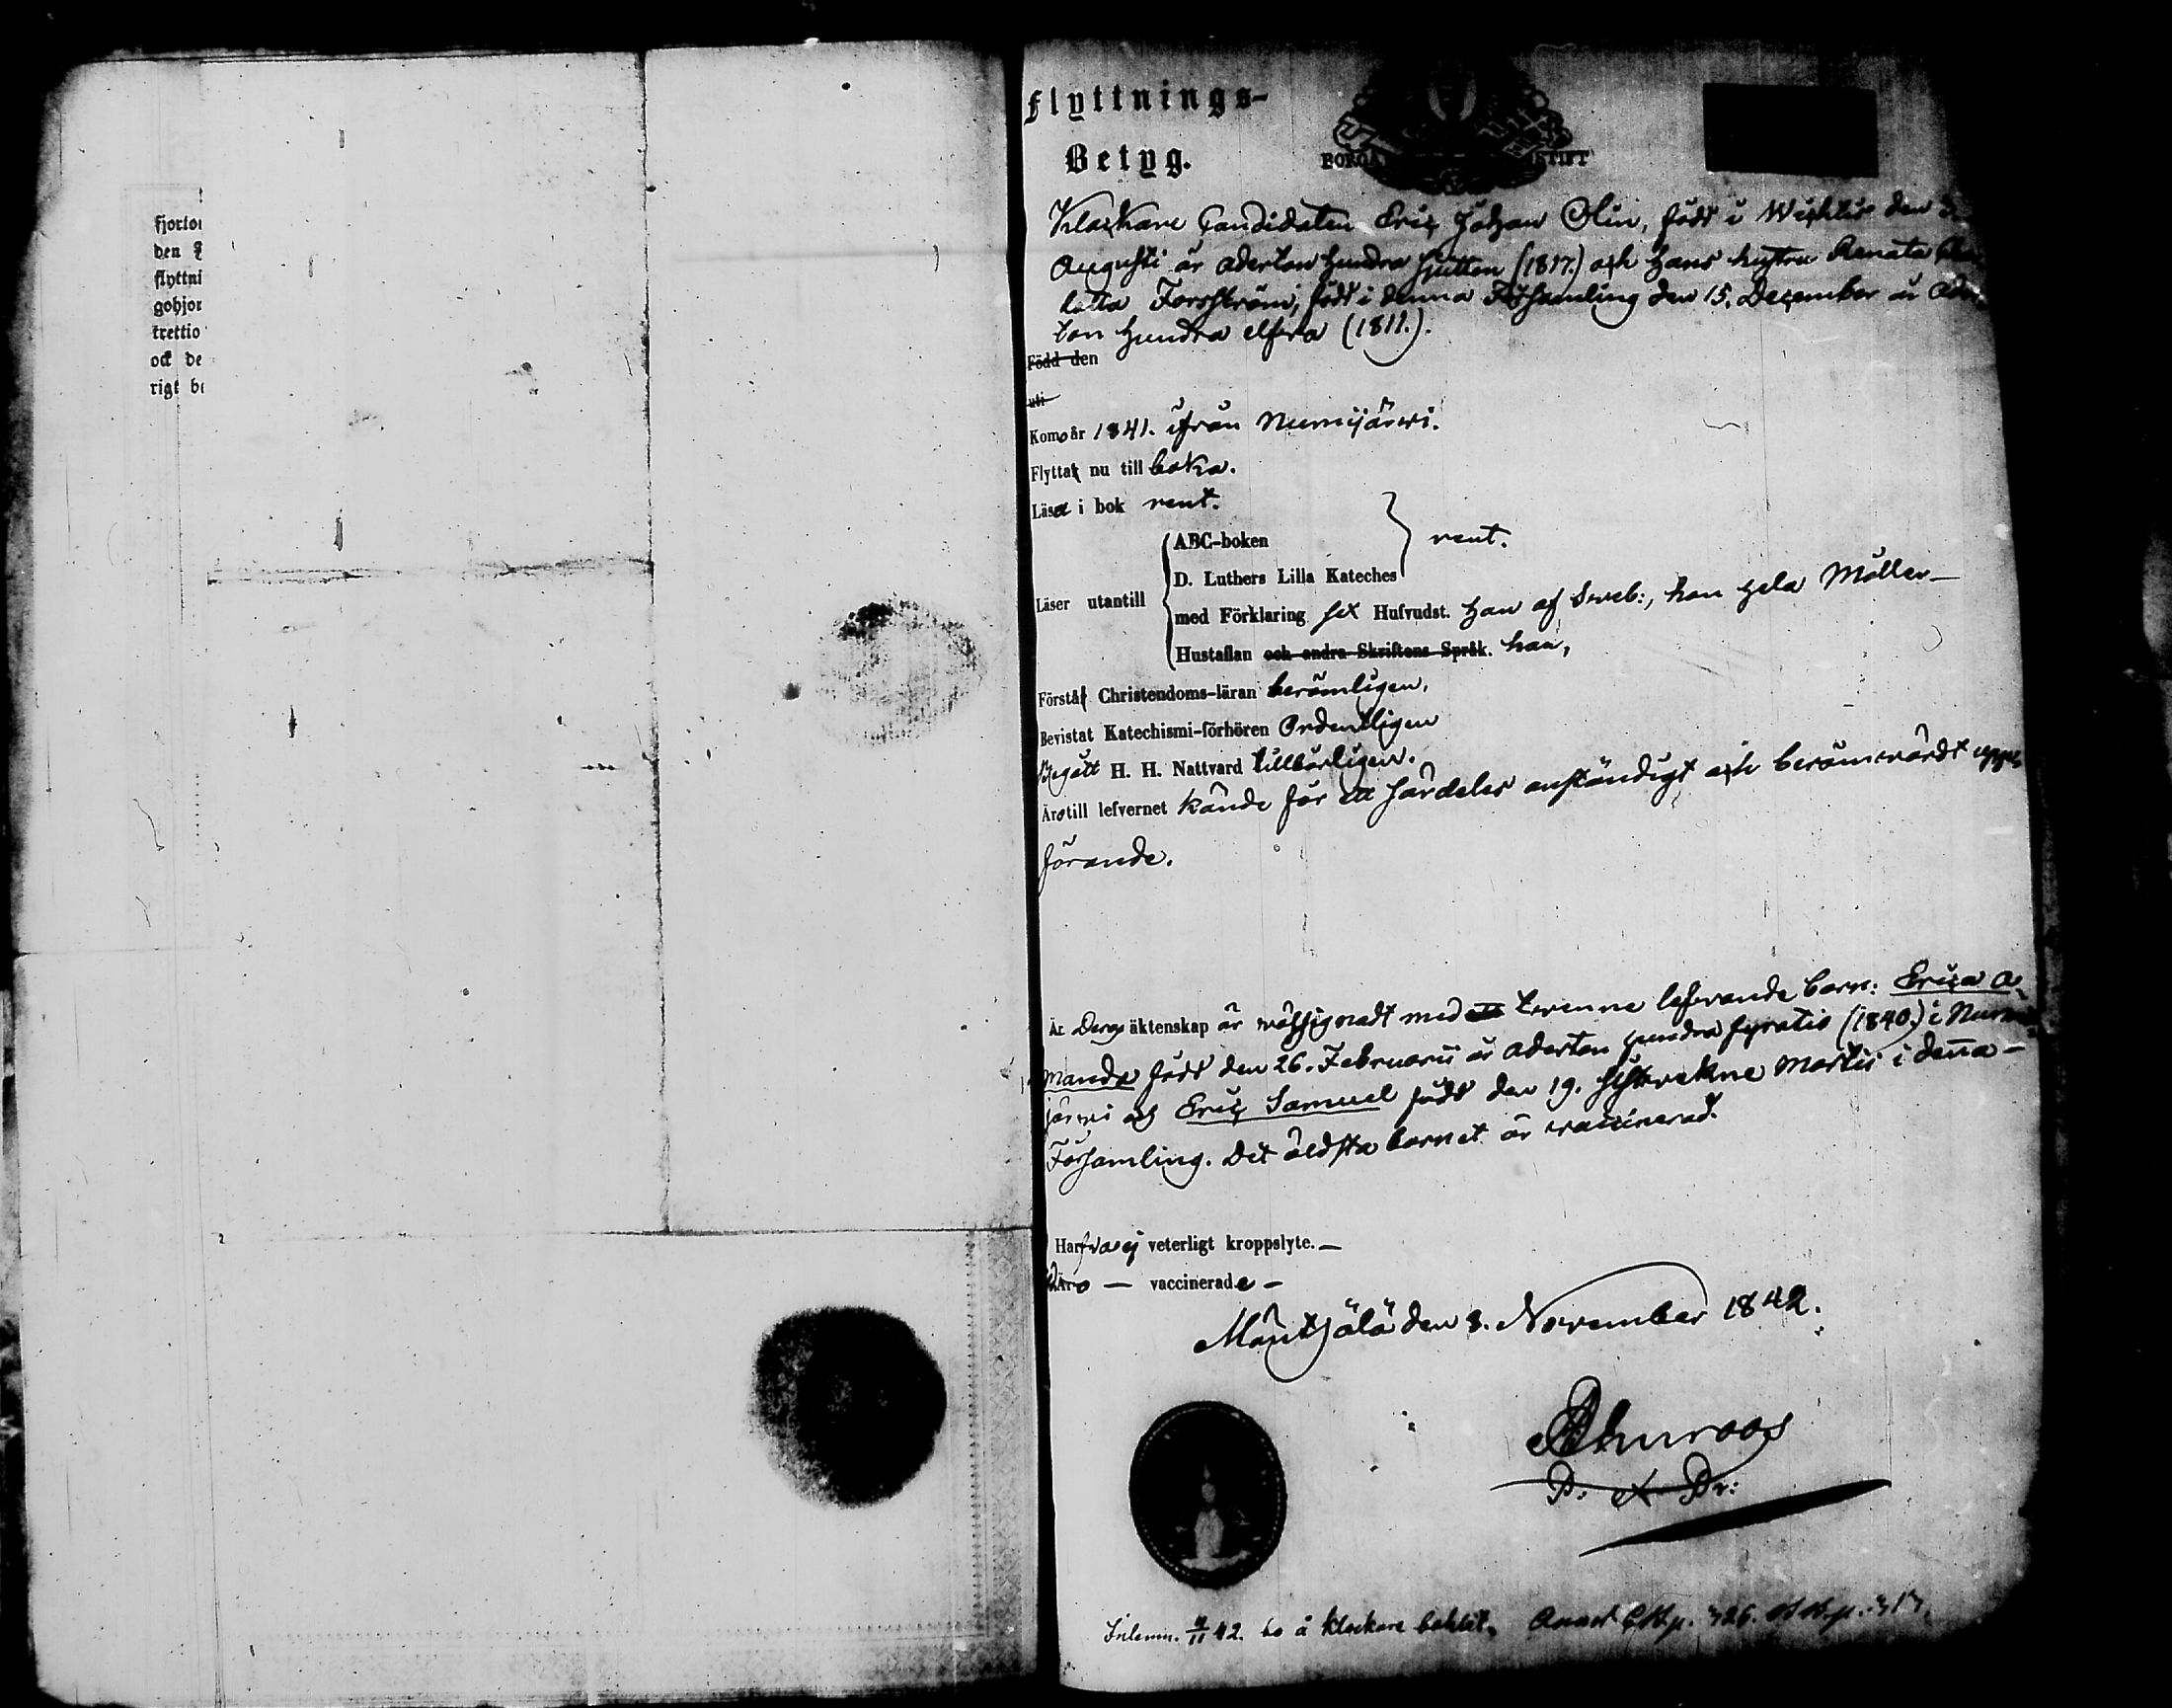 fjorto
den
flyttni
gohjor
trettio
ock de
rigt be
Flyttnings-
Betyg.
BORGÅ STIFT
Klockare Candidaten Eric Johan Olin, född i Wichtis den
Augusti år adertonhundra sjutton (1817.) och hans hustru Renata
lotta Forsström, född i denna Församling den 15. December år Ader
ton hundra elfva (1811.).
Född den
uti
Komo år 1841. ifrån Nurmijärwi.
Flytta nu till boka.
Läsa i bok rent.
ABC-boken
D. Luthers Lilla Kateches } rent.
Läser utantill
med Förklaring sex Hufvudst. han af Sveb:, hon hela Möller—
Hustaflan och andra Skriftens Språk. han,
Förstå Christendoms-läran berömligen.
Bevistat Katechismi-förhören Ordentligen
Begått H. H. Nattvard tillbörligen.
Äro till lefvernet kände för ett särdeles anständigt och berömvärdt upp-
förande.
Är Deras äktenskap är välsignadt med tvenne lefvande barn: Erica A-
manda född den 26. Februarii år aderton hundra fyratio (1840.) i Nurmi-
järwi och Eric Samuel född den 19. sistvekne Martii i denna
Församling. Det äldsta barnet är vaccinerad.
Hafva ej veterligt kroppslyte.—
Äro — vaccinerade —
Mäntsälä den 8. November 1842.
Ahnroos
P: et Pr:
Inlemn. 9/11 42. bo å klockare bohlet. Annot